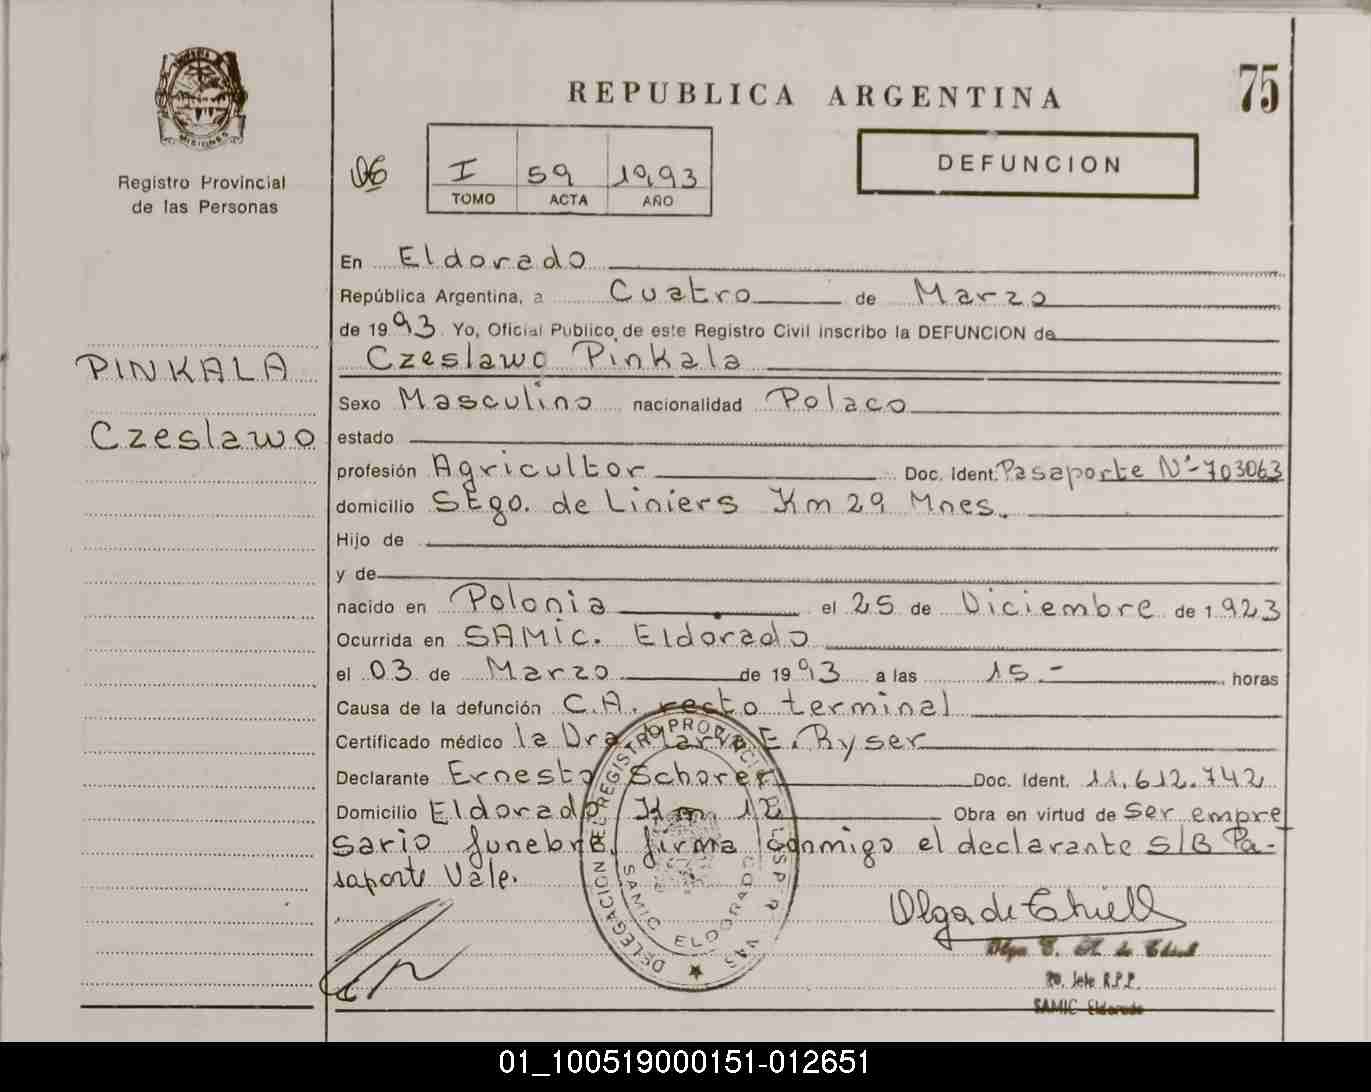 MISIONES
Registro Provincial
de las Personas
REPUBLICA ARGENTINA
75
06
I 59 1993
TOMO ACTA AÑO
DEFUNCION
En Eldorado
República Argentina, a Cuatro de Marzo
de 1993. Yo, Oficial Publico de este Registro Civil inscribo la DEFUNCION de
Czeslawo Pinkala
PINKALA
Czeslawo
Sexo Masculino nacionalidad Polaco
estado
profesión Agricultor Doc. Ident. Pasaporte Nº 703063
domicilio Stgo. de Liniers Km 29 Mnes.
Hijo de
y de
nacido en Polonia el 25 de Diciembre de 1.923
Ocurrida en SAMIC. Eldorado
el 03 de Marzo de 1993 a las 15.- horas
Causa de la defunción C.A. recto terminal
Certificado médico la Dra. E. Ryser
Declarante Ernesto Schorer Doc. Ident. 11.612.742
Domicilio Eldorado Km. 12 Obra en virtud de Ser empre
sario funebre. firma conmigo el declarante S/B Pa-
saporte Vale.
DELEGACION DEL REGISTRO PROVINCIAL
SAMIC ELDORADO
Olga de Chiell
2o. Jefe R.P.P.
SAMIC Eldorado
01_100519000151-012651